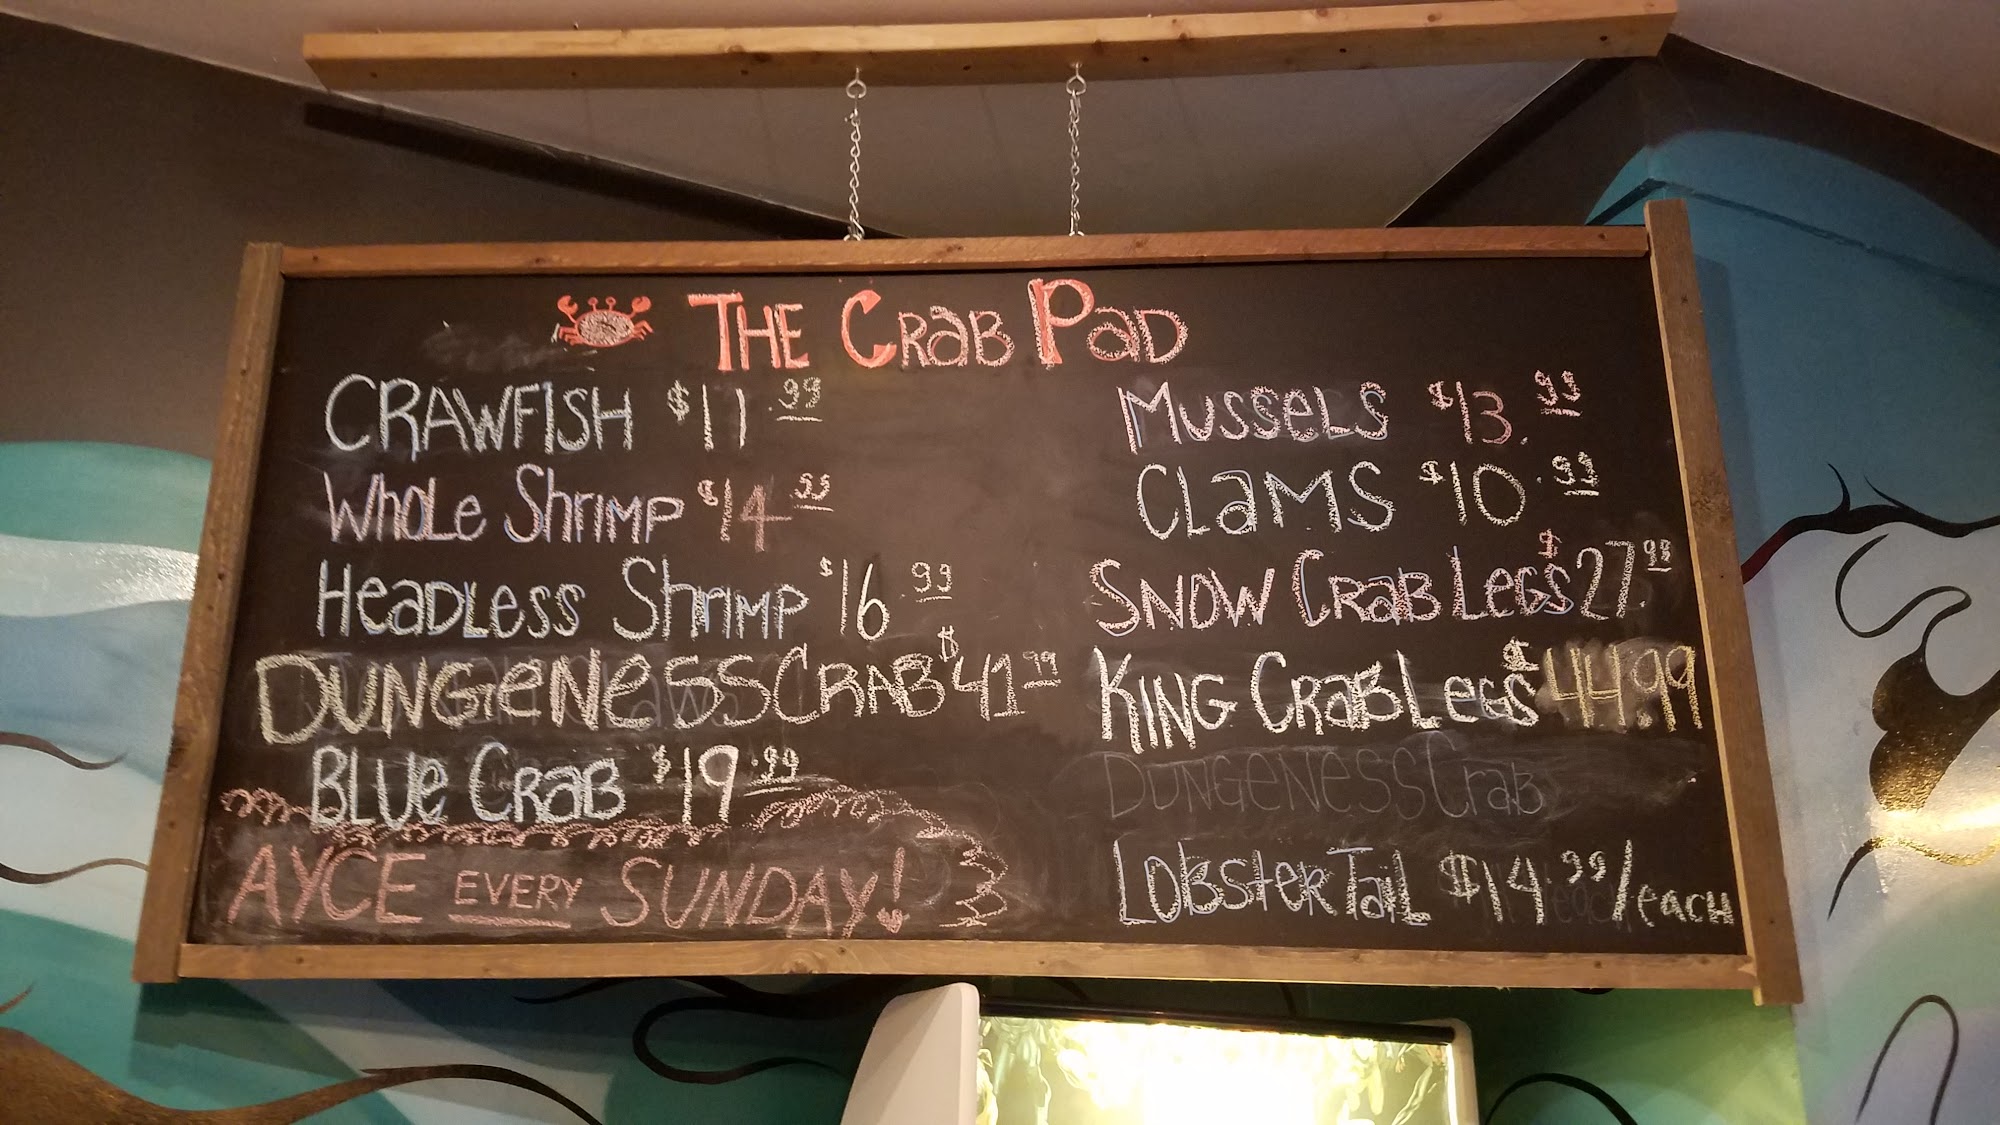 THE CRAB PAD
CRAWFISH $11.99
WHOLE SHRIMP $14.99
HEADLESS SHRIMP $16.99
DUNGENESS CRAB $41.99
BLUE CRAB $19.99
AYCE EVERY SUNDAY!
MUSSELS $13.99
CLAMS $10.99
SNOW CRAB LEGS $27.99
KING CRAB LEGS $44.99
DUNGENESS CRAB
LOBSTER TAIL $14.99/EACH